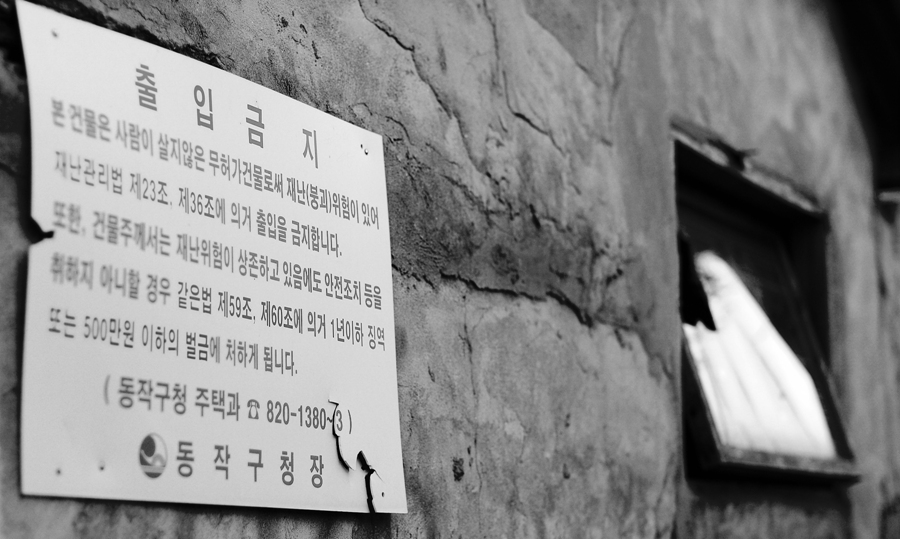 출 입 금 지
본 건물은 사람이 살지않은 무허가건물로써 재난(붕괴)위험이 있어
재난관리법 제23조, 제36조에 의거 출입을 금지합니다.
또한, 건물주께서는 재난위험이 상존하고 있음에도 안전조치 등을
취하지 아니할 경우 같은법 제59조, 제60조에 의거 1년이하 징역
또는 500만원 이하의 벌금에 처하게 됩니다.
( 동작구청 주택과 ☎ 820-1380~3 )
동 작 구 청 장